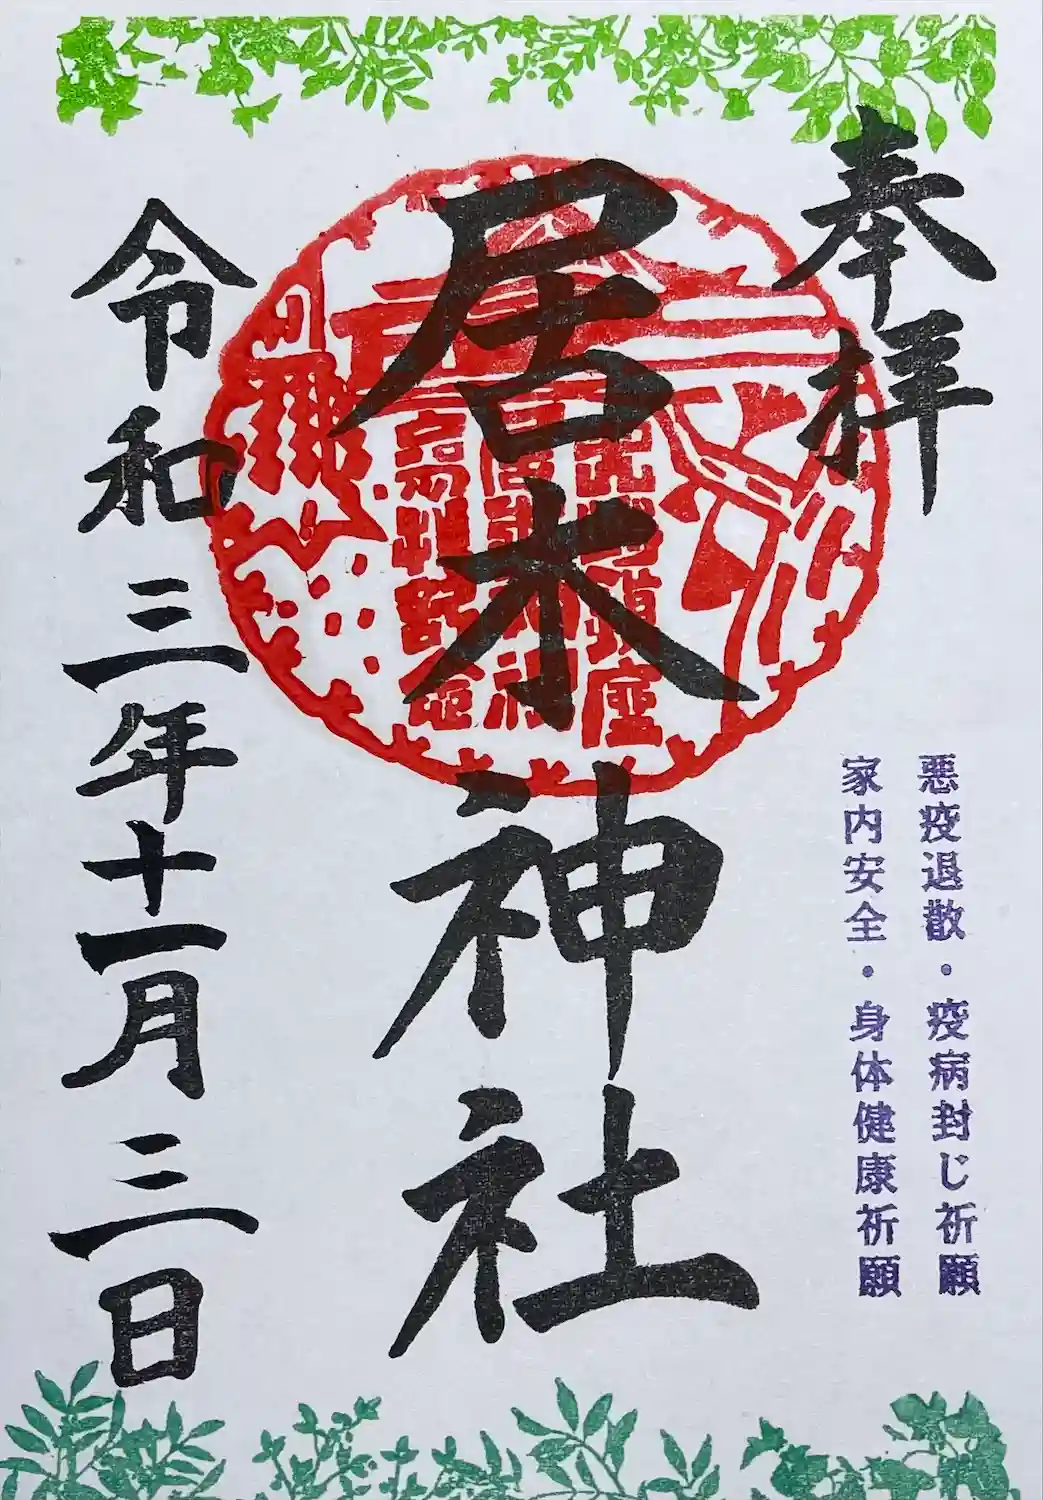 奉拝
悪疫退散・疫病封じ祈願
家内安全・身体健康祈願
居木神社
令和三年十一月三日